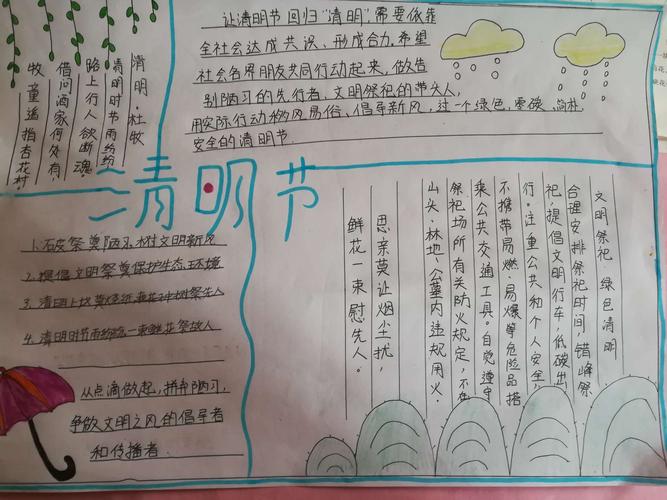 清明·杜牧
清明时节雨纷纷
路上行人欲断魂。
借问酒家何处有,
牧童遥指杏花村
让清明节回归"清明"需要依靠
全社会达成共识、形成合力,希望
社会各界朋友共同行动起来,做告
别陋习的先行者、文明祭祀的带头人,
用实际行动移风易俗、倡导新风,过一个绿色,简朴
安全的清明节.
清明节
1.石皮祭奠陋习,树文明新风
2.提倡文明祭奠保护生态环境
3.清明上坟莫烧纸,栽花种树祭先人
4.清明时节雨纷纷一束鲜花祭故人
从点滴做起,拼弃陋习,
争做文明之风的倡导者
和传播者.
文明祭祀 绿色清明,
合理安排祭祀时间,错峰祭
祀,提倡文明行车,低碳出
行。注重公共和个人安全,
不携带易燃、易爆等危险品搭
乘公共交通工具。自觉遵守
祭祀场所有关防火规定,不在
山头、林地、公墓内违规用火。
思亲莫让烟尘扰,
鲜花一束慰先人。